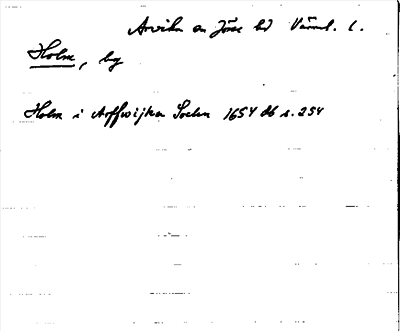 Arvika sn Jöse hd Värml. l.
Holm, by
Holm i Arffwijka Sochn 1654 db s. 254